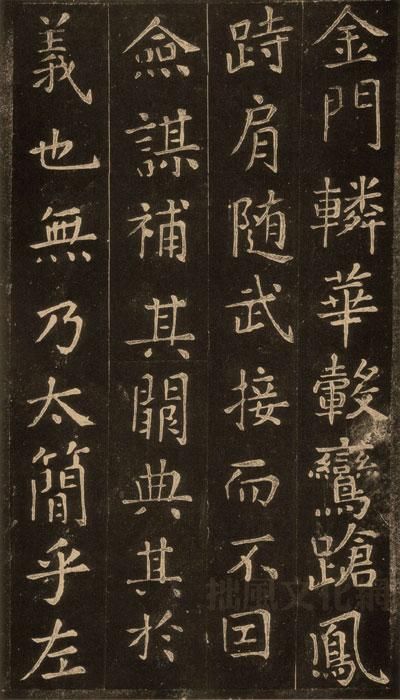 金門轔華轂鸞蹌鳳
跱肩随武接而不囙
僉謀補其闕典其於
義也無乃太簡乎左
拙風文化網